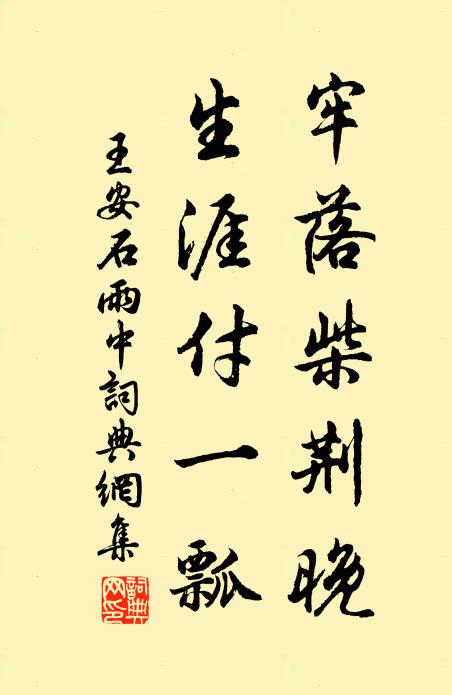 牢落柴荆晚
生涯付一瓢
王安石雨中詞典網集
詞典